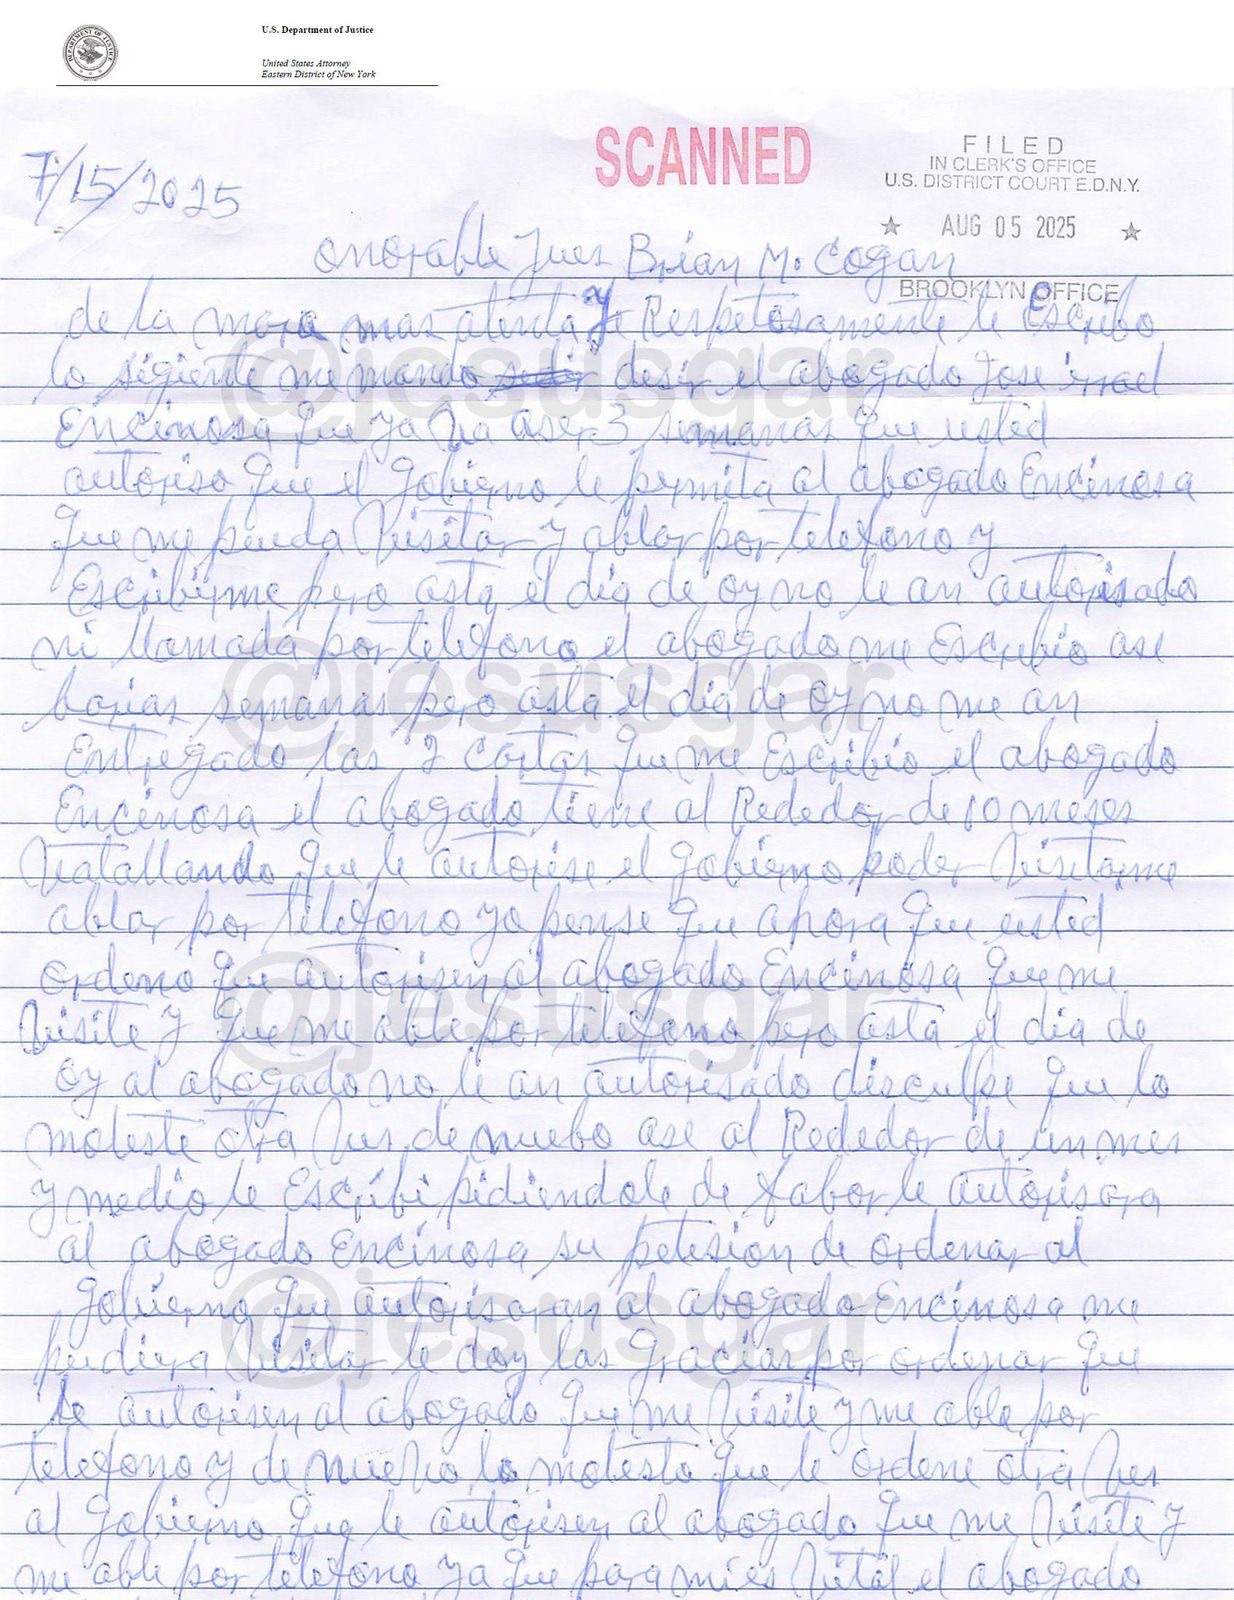 U.S. Department of Justice
United States Attorney
Eastern District of New York
SCANNED
FILED
IN CLERK'S OFFICE
U.S. DISTRICT COURT E.D.N.Y.
★ AUG 05 2025 ★
BROOKLYN OFFICE
7/15/2025
Onorable Jues Brian M. Cogan
de la mara mas atenta y Respetosamente le Escribo
lo sigiente me mando desir el abogado Jose isrrael
Encinosa que ya va aser 3 semanas que usted
autoriso que el gobierno le permita al abogado Encinosa
que me pueda Visitar y ablar por telefono y
Escribirme pero asta el dia de oy no le an autorisado
ni llamada por telefono el abogado me Escribio ase
barias semanas pero asta el dia de oy no me an
Entregado las 2 cartas que me Escribio el abogado
Encinosa el abogado tiene al Rededor de 10 meses
Vatallando que le autorise el gobierno poder Visitarme
ablar por telefono yo pense que ahora que usted
ordeno que autorisen al abogado Encinosa que me
Visite y que me able por telefono pero asta el dia de
oy al abogado no le an autorisado disculpe que lo
moleste otra Ves de nuebo ase al Rededor de un mes
y medio le Escribi pidiendole de fabor le autorisara
al abogado Encinosa su petesion de ordenar al
gobierno que autorisaran al abogado Encinosa me
pudiera Visitar le doy las gracias por ordenar que
le autorisen al abogado que me Visite y me able por
telefono y de nuevo lo molesto que le ordene otra Ves
al gobierno que le autorisen al abogado que me Visite y
me able por telefono ya que para mi es Vital el abogado
@jesusgar
@jesusgar
@jesusgar
@jesusgar